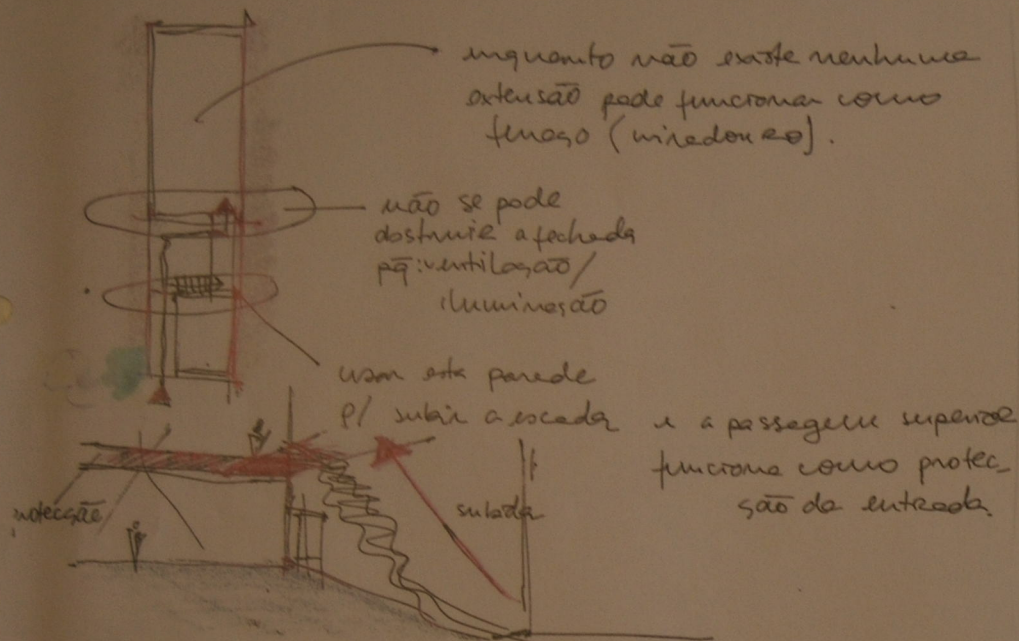 inquanto não existe nenhuma
extensão pode funcionar como
terraço (miradouro).
não se pode
obstruir a fachada
pq: ventilação/
iluminação
usar esta parede
p/ subir a escada e a passagem superior
funciona como protec-
ção da entrada.
protecção
subida